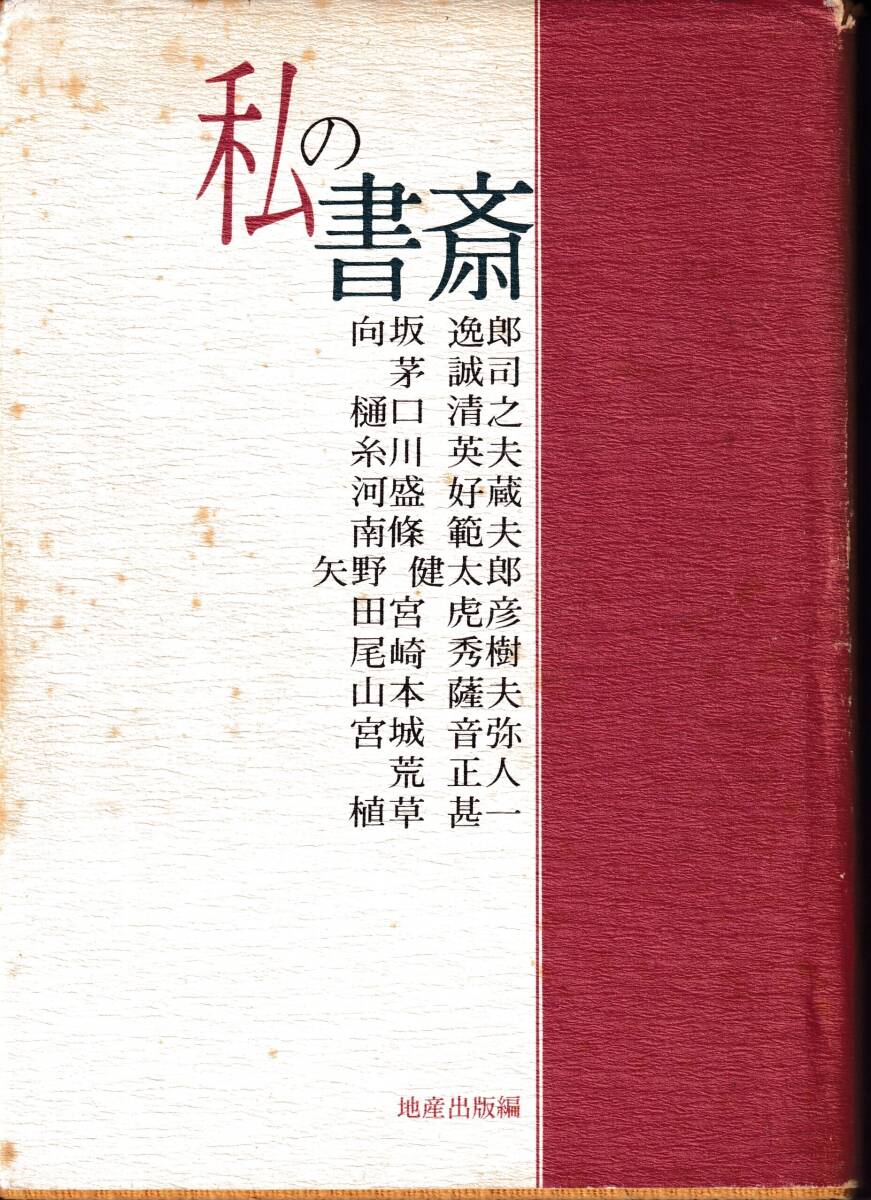 私の
書斎
向坂 逸郎
茅 誠司
樋口 清之
糸川 英夫
河盛 好蔵
南條 範夫
矢野 健太郎
田宮 虎彦
尾崎 秀樹
山本 薩夫
宮城 音弥
荒 正人
植草 甚一
地産出版編